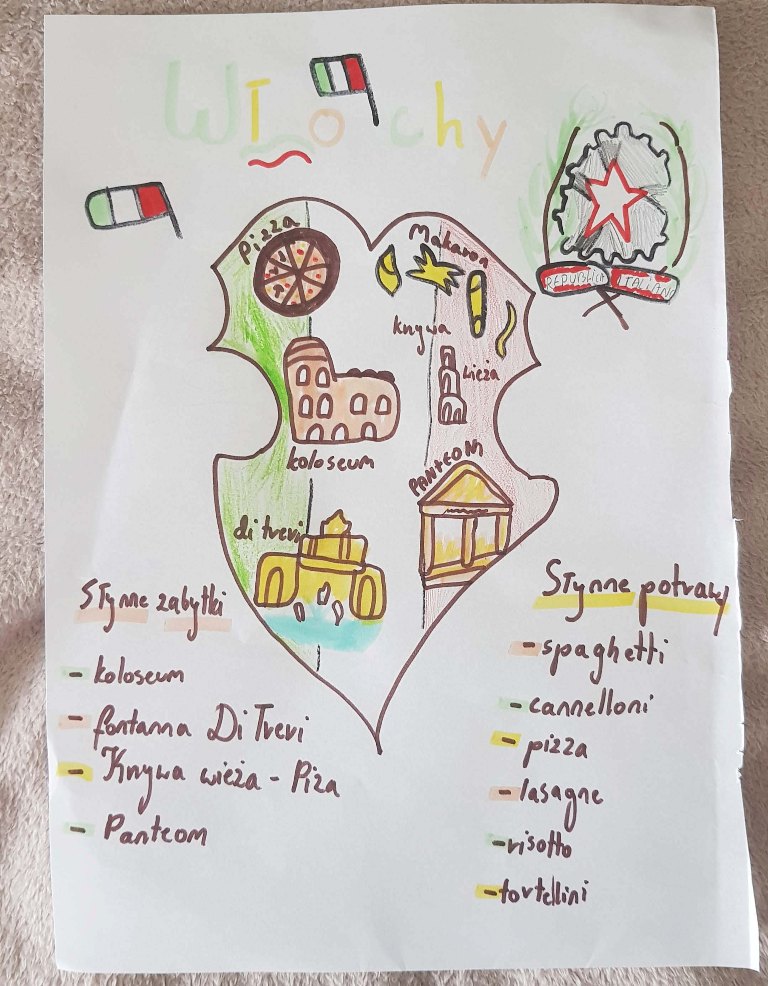 Włochy
Pizza
Makaron
knywa
wieża
koloseum
PANTEOM
di trevi
REPUBBLICA ITALIANA
Słynne zabytki
- koloseum
- fontanna Di Trevi
- Knywa wieża - Piza
- Panteom
Słynne potrawy
- spaghetti
- cannelloni
- pizza
- lasagne
- risotto
- tortellini